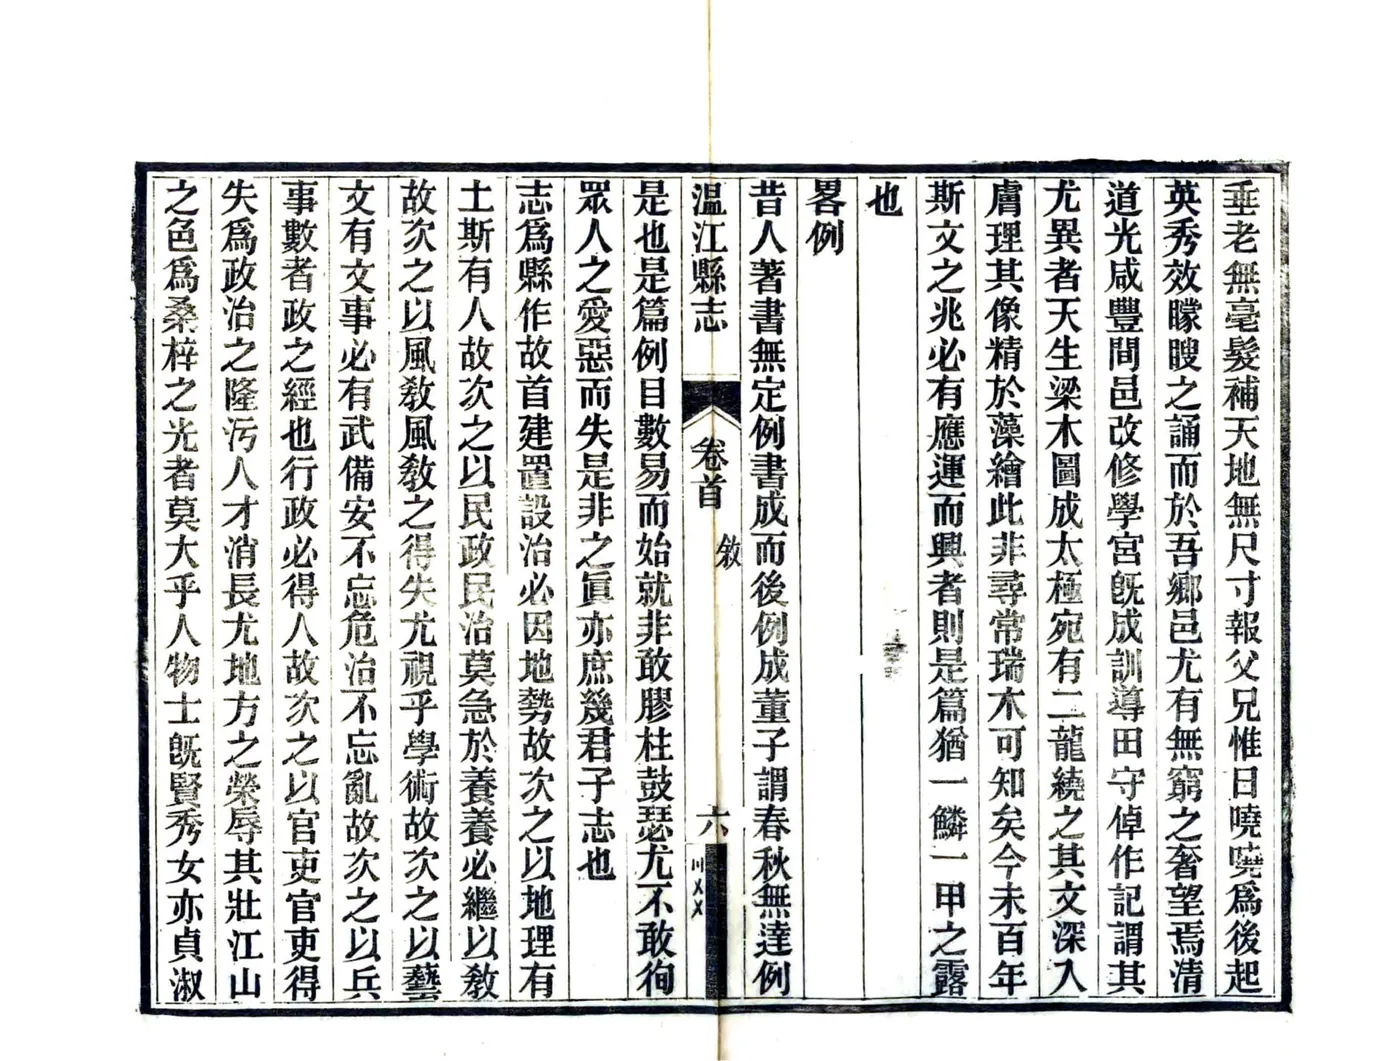 垂老無毫髮補天地無尺寸報父兄惟日嘵嘵爲後起
英秀效矇瞍之誦而於吾鄉邑尤有無窮之奢望焉清
道光咸豐間邑改修學宮旣成訓導田守倬作記謂其
尤異者天生梁木圖成太極宛有二龍繞之其文深入
膚理其像精於藻繪此非尋常瑞木可知矣今未百年
斯文之兆必有應運而興者則是篇猶一鱗一甲之露
也
畧例
昔人著書無定例書成而後例成董子謂春秋無達例
溫江縣志
卷首
敘
六
是也是篇例目數易而始就非敢膠柱鼓瑟尤不敢徇
眾人之愛惡而失是非之眞亦庶幾君子志也
志爲縣作故首建置設治必因地勢故次之以地理有
土斯有人故次之以民政民治莫急於養養必繼以敎
故次之以風敎風敎之得失尤視乎學術故次之以藝
文有文事必有武備安不忘危治不忘亂故次之以兵
事數者政之經也行政必得人故次之以官吏官吏得
失爲政治之隆污人才消長尤地方之榮辱其壯江山
之色爲桑梓之光者莫大乎人物士旣賢秀女亦貞淑